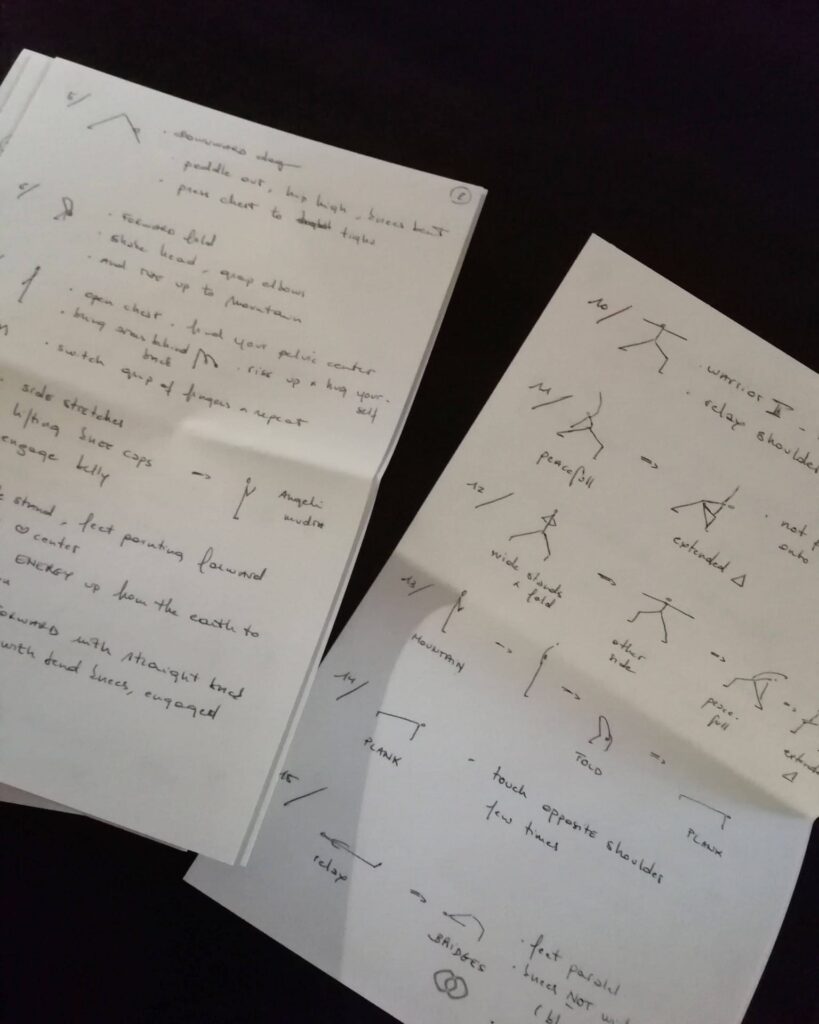 5/
2
· DOWNWARD dog
· paddle out, hip high, knees bent
· press chest to tight
6/
· FORWARD fold
· shake head, grap elbows
· And rise up to Mountain
· open chest · find your pelvic center
· bring arms behind back · rise up & hug yourself
· switch grap of fingers & repeat
· side stretches
lifting knee caps
engage belly
=> Angeli mudra
stand, feet pointing forward
♡ center
ENERGY up from the earth to
FORWARD with straight back
with bend knees, engaged
10/
· WARRIOR II -
· relax shoulder
11/
peacefull
=>
extended Δ
· not
onto
12/
wide stands
& fold
=>
other
side
=>
peace-
full
=>
extended
Δ
13/
MOUNTAIN
=>
=>
FOLD
=>
PLANK
14/
PLANK
- touch opposite shoulder
few times
15/
relax
=>
BRIDGES
· feet paralel
· knees NOT